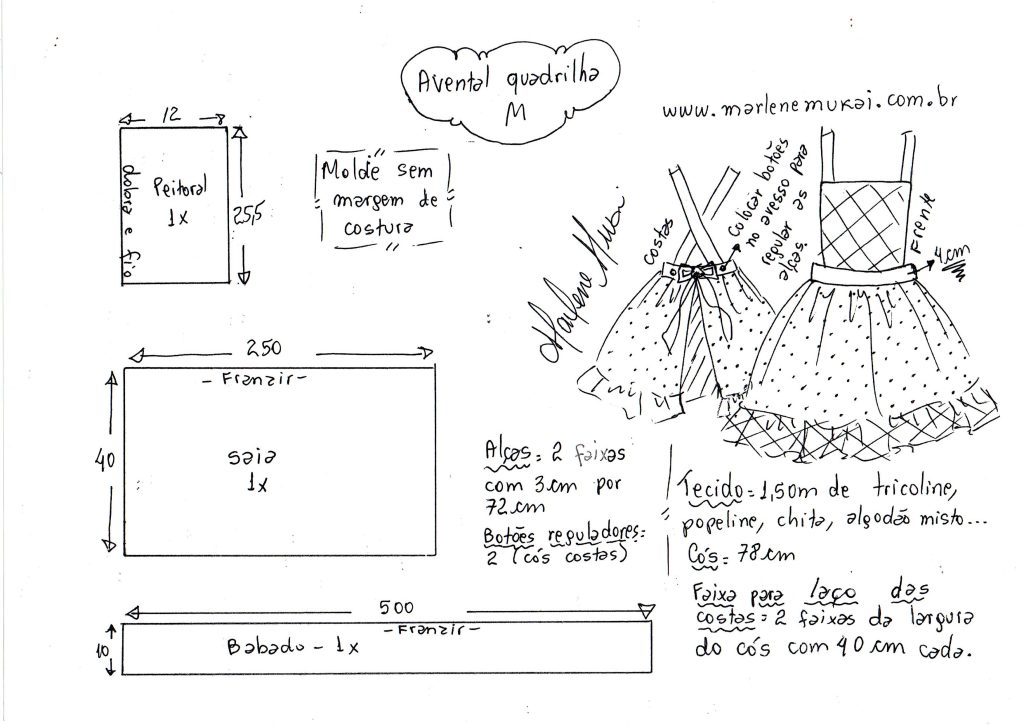 Avental quadrilha
M
www.marlenemukai.com.br
12
dobra e fio
Peitoral
1x
25,5
Molde sem
margem de
costura
Marlene Mukai
costas
Colocar botões
no avesso para
regular as
alças.
Frente
4cm
250
- Franzir -
40
saia
1x
Alças = 2 faixas
com 3cm por
72cm
Botões reguladores =
2 (cós costas)
Tecido = 1,50m de tricoline,
popeline, chita, algodão misto...
Cós = 78cm
Faixa para laço das
costas = 2 faixas da largura
do cós com 40cm cada.
500
- Franzir -
10
Babado - 1x